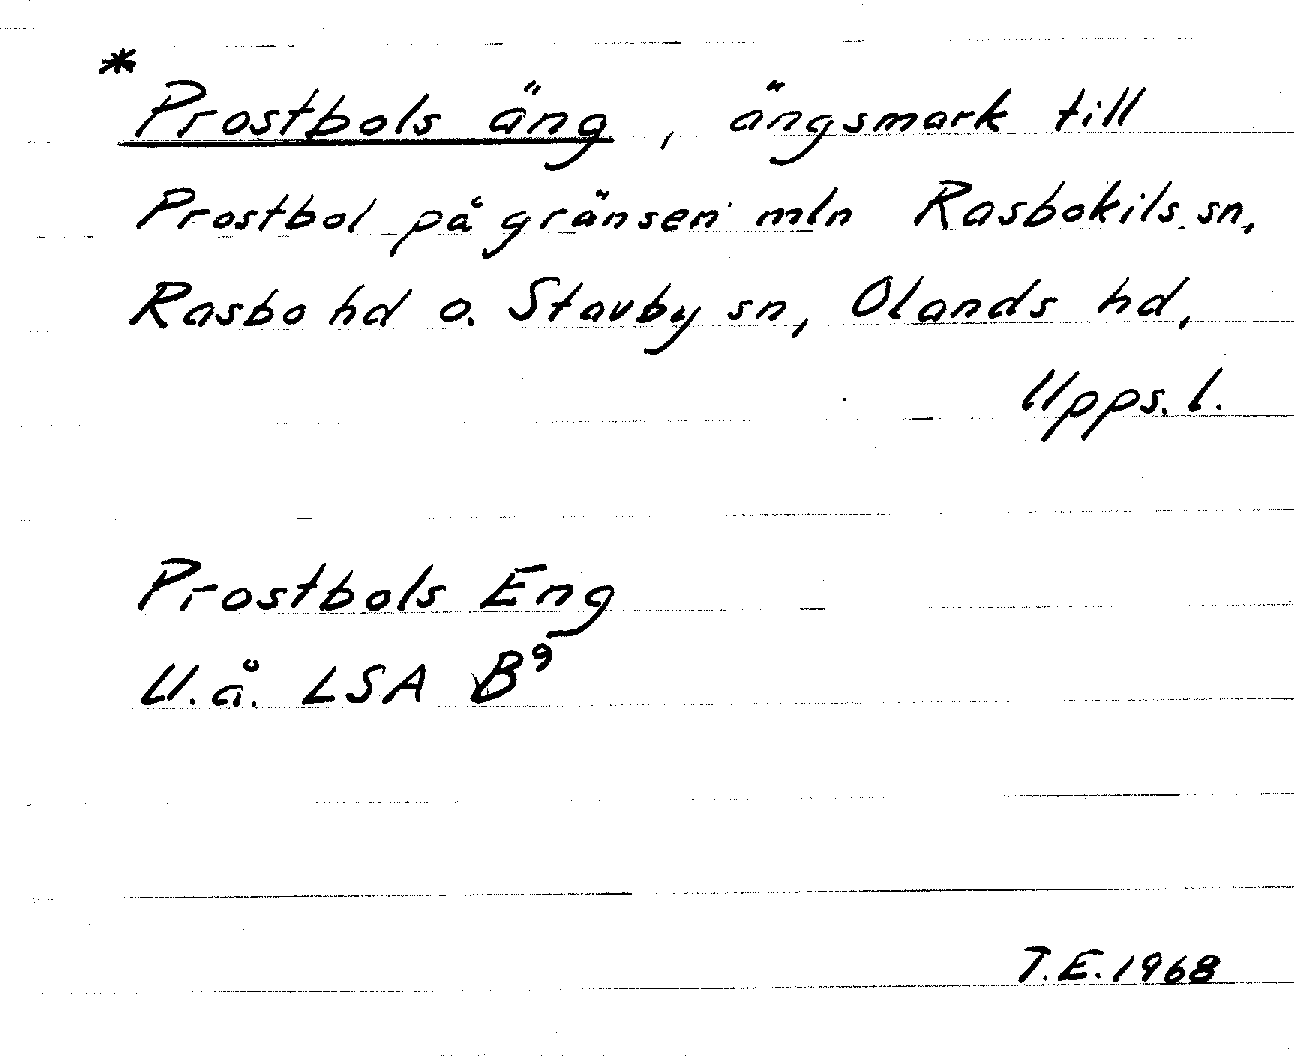 *
Prostbols äng, ängsmark till
Prostbol på gränsen mln Rasbokils sn,
Rasbo hd o. Stavby sn, Olands hd,
Upps. l.
Prostbols Eng
U.å. LSA B⁹
T.E. 1968